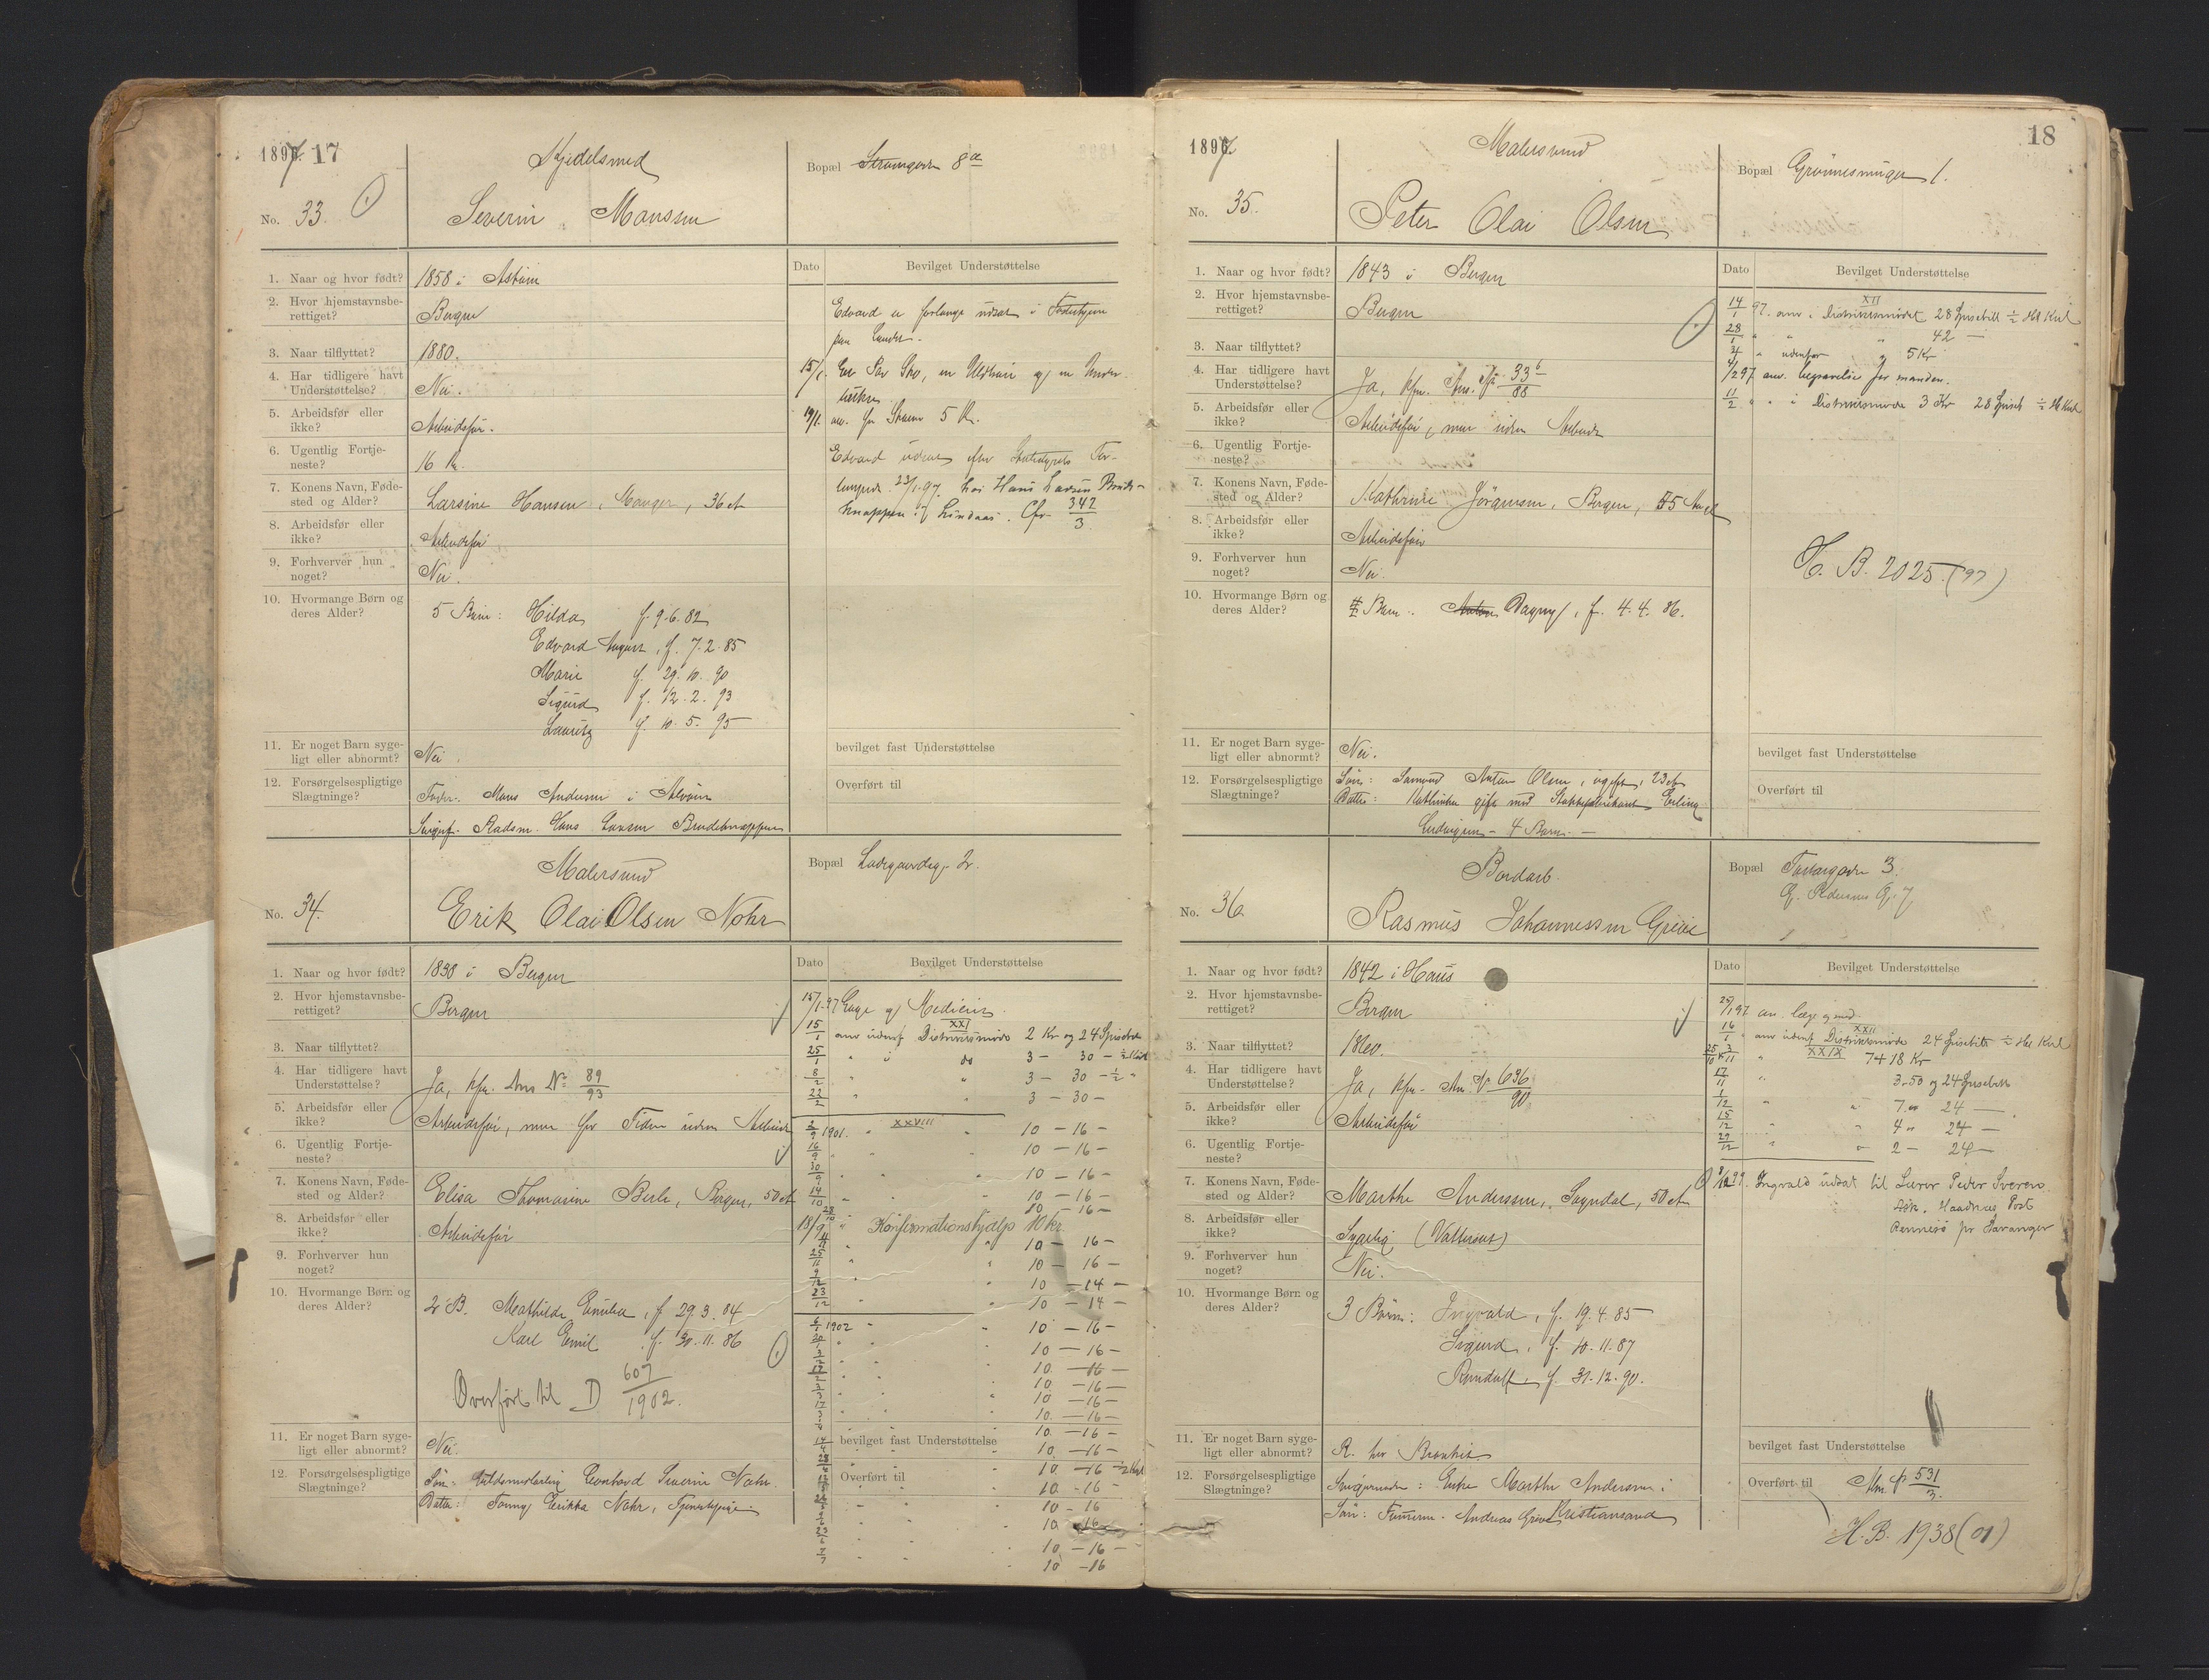 1897. 17
Kjedelsmed
Bopæl Strømgaden 8a
No. 33
Severin Monssen
1. Naar og hvor født? 1858 i Askøen
2. Hvor hjemstavnsberettiget? Bergen
3. Naar tilflyttet? 1880.
4. Har tidligere havt Understøttelse? Nei.
5. Arbeidsfør eller ikke? Arbeidsfør.
6. Ugentlig Fortjeneste? 16 Kr.
7. Konens Navn, Fødested og Alder? Larsine Hansen, Manger, 36 et
8. Arbeidsfør eller ikke? Arbeidsfør
9. Forhverver hun noget? Nei.
10. Hvormange Børn og deres Alder? 5 Børn: Hilda f. 9.6.82
Edvard August, f. 7.2.85
Marie f. 29.10.90
Sigurd f. 12.2.93
Lauritz f. 10.5.95
11. Er noget Barn sygeligt eller abnormt? Nei.
12. Forsørgelsespligtige Slægtninge? Fader. Mons Andersen i Alvøen
Svigerf. Hans Larsen Brudeknappen
Dato Bevilget Understøttelse
Edvard er forlangt udsat i
paa Landet.
15/1. Et Par Sko, en og en Under-
19/1. anv. for 5 Kr.
Edvard udsat efter For-
23/1.97 hos Hans Larsen Brude-
knappen i Lindaas. Cfr. 342/3
bevilget fast Understøttelse
Overført til
Malersvend
Bopæl Ladegaardsg. 2.
No. 34.
Erik Olai Olsen Nohr
1. Naar og hvor født? 1838 i Bergen
2. Hvor hjemstavnsberettiget? Bergen
3. Naar tilflyttet?
4. Har tidligere havt Understøttelse? Ja, kfr. Ans No 89/93
5. Arbeidsfør eller ikke? Arbeidsfør, men for Tiden uden Arbeide
6. Ugentlig Fortjeneste?
7. Konens Navn, Fødested og Alder? Elisa Thomasine Berle, Bergen, 50 et
8. Arbeidsfør eller ikke? Arbeidsfør
9. Forhverver hun noget?
10. Hvormange Børn og deres Alder? 2 B. Mathilde Emilia, f. 29.3.84
Karl Emil f. 30.11.86
Overført til D 607/1902.
11. Er noget Barn sygeligt eller abnormt? Nei.
12. Forsørgelsespligtige Slægtninge? Søn: Severin Nohr.
Datter: Fanny Erikka Nohr, Tjenestepige
Dato Bevilget Understøttelse
15/1.97 Læge og Medicin.
15/1 anv udenf Distriktsmøde XXI 2 Kr og 24 Spisebill
25/1 " i do 3 – 30 –
8/2 " " 3 – 30 – ½ "
22/2 " " 3 – 30 –
2/9 1901. " XXVIII 10 – 16 –
16/9 " " 10 – 16 –
30/9 " " 10 – 16 –
14/10 " " 10 – 16 –
28/10 10 – 16 –
18/9 " Konfirmationshjælp 10 kr.
11/11 " " 10 – 16 –
25/11 " " 10 – 16 –
9/12 " " 10 – 14 –
23/12 " " 10 – 14 –
6/1 1902 " " 10 – 16 –
20/1 " " 10 – 16 –
3/2 " " 10 – 16 –
10 – 16 –
3/3 10 – 16 –
17/3 10 – 16 –
10 – 16 –
14/4 bevilget fast Understøttelse 10 – 16 –
28/4 10 – 16 –
Overført til 10 – 16 –
10 – 16
10 – 16
10 – 16 –
7/7 10 – 16
1897. 18
Malersvend
Bopæl 1.
No. 35.
Peter Olai Olsen
1. Naar og hvor født? 1843 i Bergen
2. Hvor hjemstavnsberettiget? Bergen
3. Naar tilflyttet?
4. Har tidligere havt Understøttelse? Ja, kfr. Ans. No 33/88
5. Arbeidsfør eller ikke? Arbeidsfør, men uden Arbeide
6. Ugentlig Fortjeneste?
7. Konens Navn, Fødested og Alder? Kathrine Jörgensen, Bergen, 55 Aar
8. Arbeidsfør eller ikke? Arbeidsfør
9. Forhverver hun noget? Nei.
10. Hvormange Børn og deres Alder? Barn: Dagny, f. 4.4.86.
11. Er noget Barn sygeligt eller abnormt? Nei.
12. Forsørgelsespligtige Slægtninge? Søn: Anton Olsen, ugift, 23 et
Datter: Kathinka gift med Erling
Ludvigsen – 4 Børn. –
Dato Bevilget Understøttelse
14/1 97. anv. i Distriktsmødet XII 28 Spisebill ½ Hl Kul
28/1 " " " 42 –
" udenfor " 5 Kr
4/2 97 anv. begravelse for manden.
11/2 " " i Distriktsmøde 3 Kr 28 Spiseb ½ Hl Kul
H. B. 2025 (97)
bevilget fast Understøttelse
Overført til
Bordarb.
Bopæl 3.
No. 36.
Rasmus Johannessen Greve
1. Naar og hvor født? 1842 i Haus
2. Hvor hjemstavnsberettiget? Bergen
3. Naar tilflyttet? 1860.
4. Har tidligere havt Understøttelse? Ja, kfr. Ans. No 636/90
5. Arbeidsfør eller ikke? Arbeidsfør
6. Ugentlig Fortjeneste?
7. Konens Navn, Fødested og Alder? Marthe Anderssen, Sogndal, 50 et
8. Arbeidsfør eller ikke? Sygelig (Vattersot)
9. Forhverver hun noget? Nei.
10. Hvormange Børn og deres Alder? 3 Børn: Ingvald, f. 19.4.85
Sigurd, f. 10.11.87
Randulf, f. 31.12.90.
11. Er noget Barn sygeligt eller abnormt? R. har Bronkit
12. Forsørgelsespligtige Slægtninge? Svigermoder: Enke Marthe Andersen i
Søn: Andreas Greve Kristiansand
Dato Bevilget Understøttelse
25/1 97 an. læge og med.
16/1 " anv udenf Distriktsmøde XXII 24 Spisebill ½ Hl Kul
XXIX 7 + 18 Kr
17/11 " 3.50 og 24 Spisebill
1/12 " " 7.00 24 –
15/12 " " 4 " 24 –
29/12 " " 2 – 24 –
99. Ingvald udsat til Lærer Peder Sveren
Ask. Haadnæs Post
Rennesø pr Stavanger
bevilget fast Understøttelse
Overført til Alm. p 531/3.
H.B. 1938 (01)